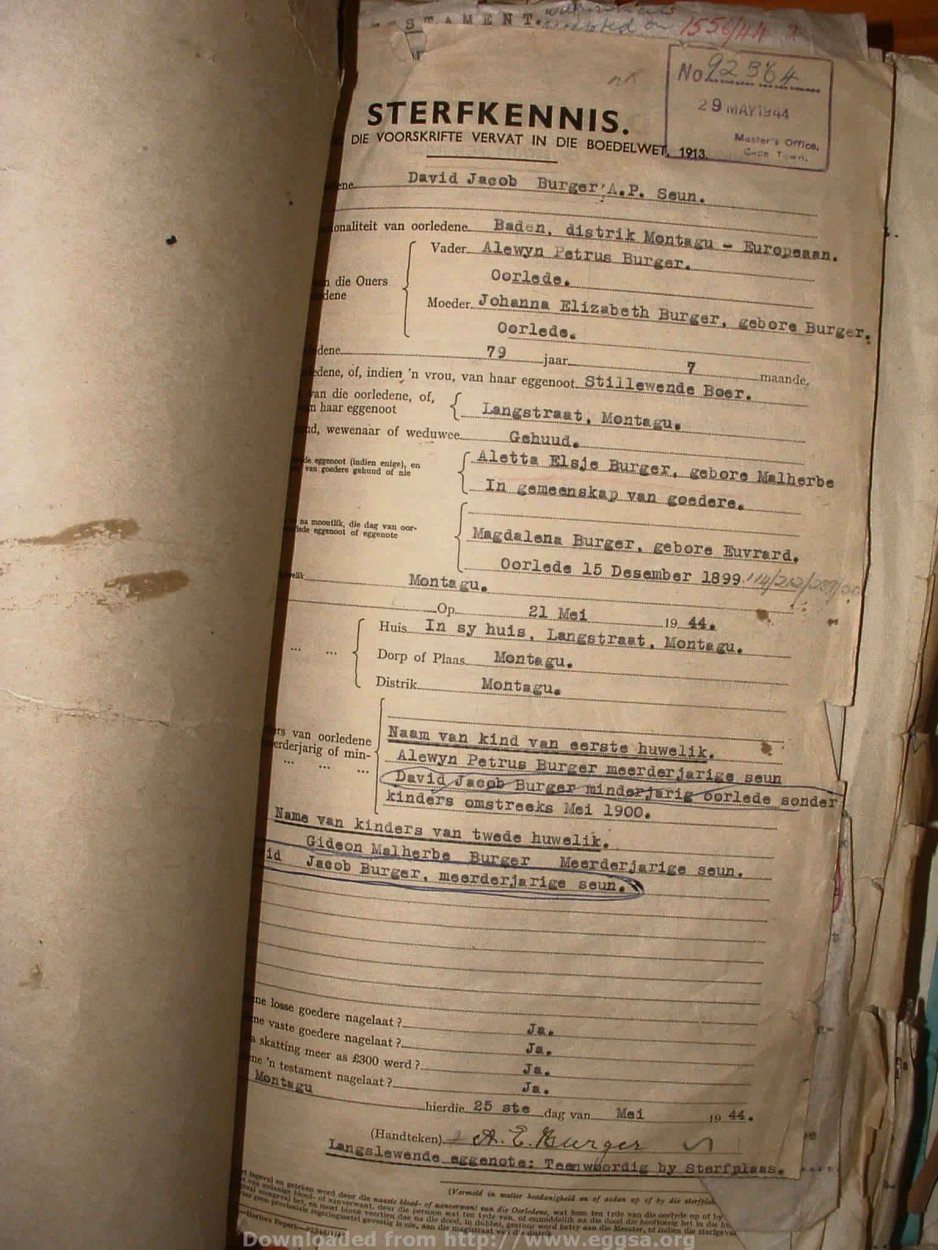 STAMENT.
1556/44
No 92364
29 MAY 1944
Master's Office,
Cape Town.
STERFKENNIS.
DIE VOORSKRIFTE VERVAT IN DIE BOEDELWET, 1913.
ene David Jacob Burger A.P. Seun.
onaliteit van oorledene Baden, distrik Montagu - Europeaan.
Vader Alewyn Petrus Burger.
Oorlede.
n die Ouers
dene
Moeder Johanna Elizabeth Burger, gebore Burger.
Oorlede.
dene 79 jaar 7 maande.
edene, of, indien 'n vrou, van haar eggenoot Stillewende Boer.
van die oorledene, of,
n haar eggenoot
Langstraat, Montagu.
ud, wewenaar of weduwee Gehuud.
de eggenoot (indien enige), en
van goedere gehuud of nie
Aletta Elsje Burger, gebore Malherbe
In gemeenskap van goedere.
na moontlik, die dag van oor-
lede eggenoot of eggenote
Magdalena Burger, gebore Euvrard.
Oorlede 15 Desember 1899
welik Montagu.
Op 21 Mei 19 44.
Huis In sy huis, Langstraat, Montagu.
Dorp of Plaas Montagu.
Distrik Montagu.
ers van oorledene
erderjarig of min-
Naam van kind van eerste huwelik.
Alewyn Petrus Burger meerderjarige seun
David Jacob Burger minderjarig oorlede sonder
kinders omstreeks Mei 1900.
Name van kinders van twede huwelik.
Gideon Malherbe Burger Meerderjarige seun.
id Jacob Burger, meerderjarige seun.
ne losse goedere nagelaat ? Ja.
ne vaste goedere nagelaat ? Ja.
n skatting meer as £300 werd ? Ja.
ne 'n testament nagelaat ? Ja.
Montagu hierdie 25 ste dag van Mei 19 44.
(Handteken) A. E. Burger
Langslewende eggenote: Teenwoordig by Sterfplaas.
Downloaded from http://www.eggsa.org